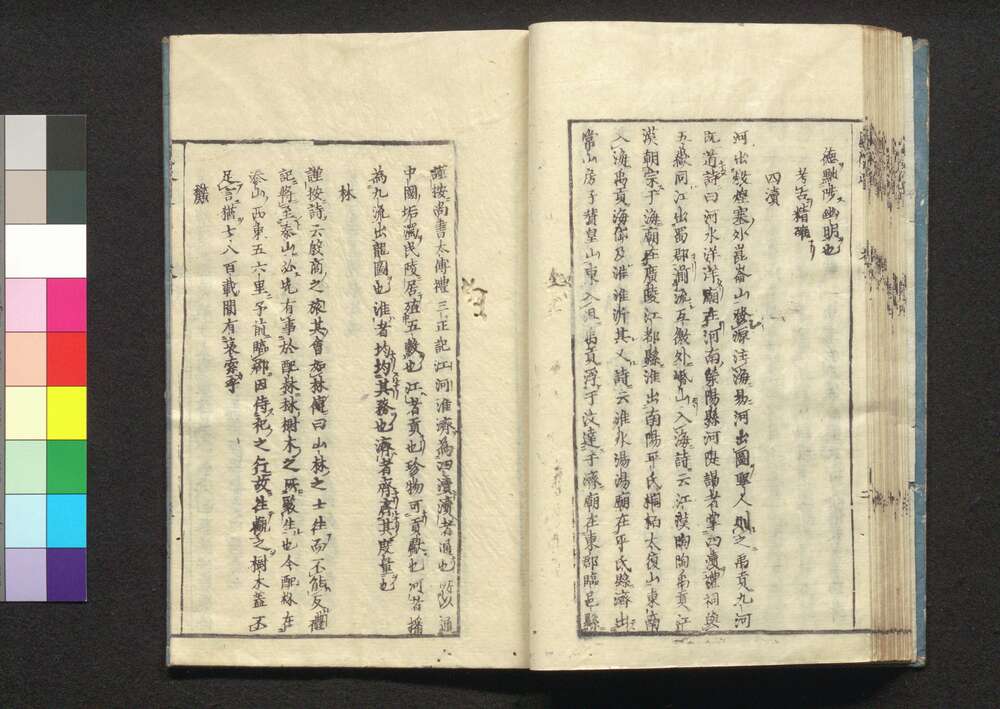 德點陟幽明也
考舌精曜
四瀆
河出燉煌塞外崑崙山發源注海易河出圖聖人則之禹貢九河
既道詩曰河水洋洋廟在河南滎陽縣河隄謁者掌四瀆禮祠與
五嶽同江出蜀郡湔流互徼外㟭山入海詩云江漢陶陶禹貢江
漢朝宗于海廟在廣陵江都縣淮出南陽平氏桐栢太復山東南
入海禹貢海岱及淮淮沂其乂詩云淮水湯湯廟在平氏縣濟出
常山房子賛皇山東入沮禹貢浮于汶達于濟廟在東郡臨邑縣
謹按尚書大傳禮三正記江河淮濟爲四瀆瀆者通也所以通
中國垢濁民陵居殖五穀也江者貢也珍物可貢獻也河者播
為九流出龍圖也淮者均均其務也濟者齊齊其度量也
林
謹按詩云殷商之旅其會如林傳曰山林之士往而不能反禮
記將至泰山必先有事於配林林樹木之所聚生也今配林在
泰山西東五六里予前臨郡因侍祀之行故往觀之樹木蓋不
足言猶七八百載間有衰索乎